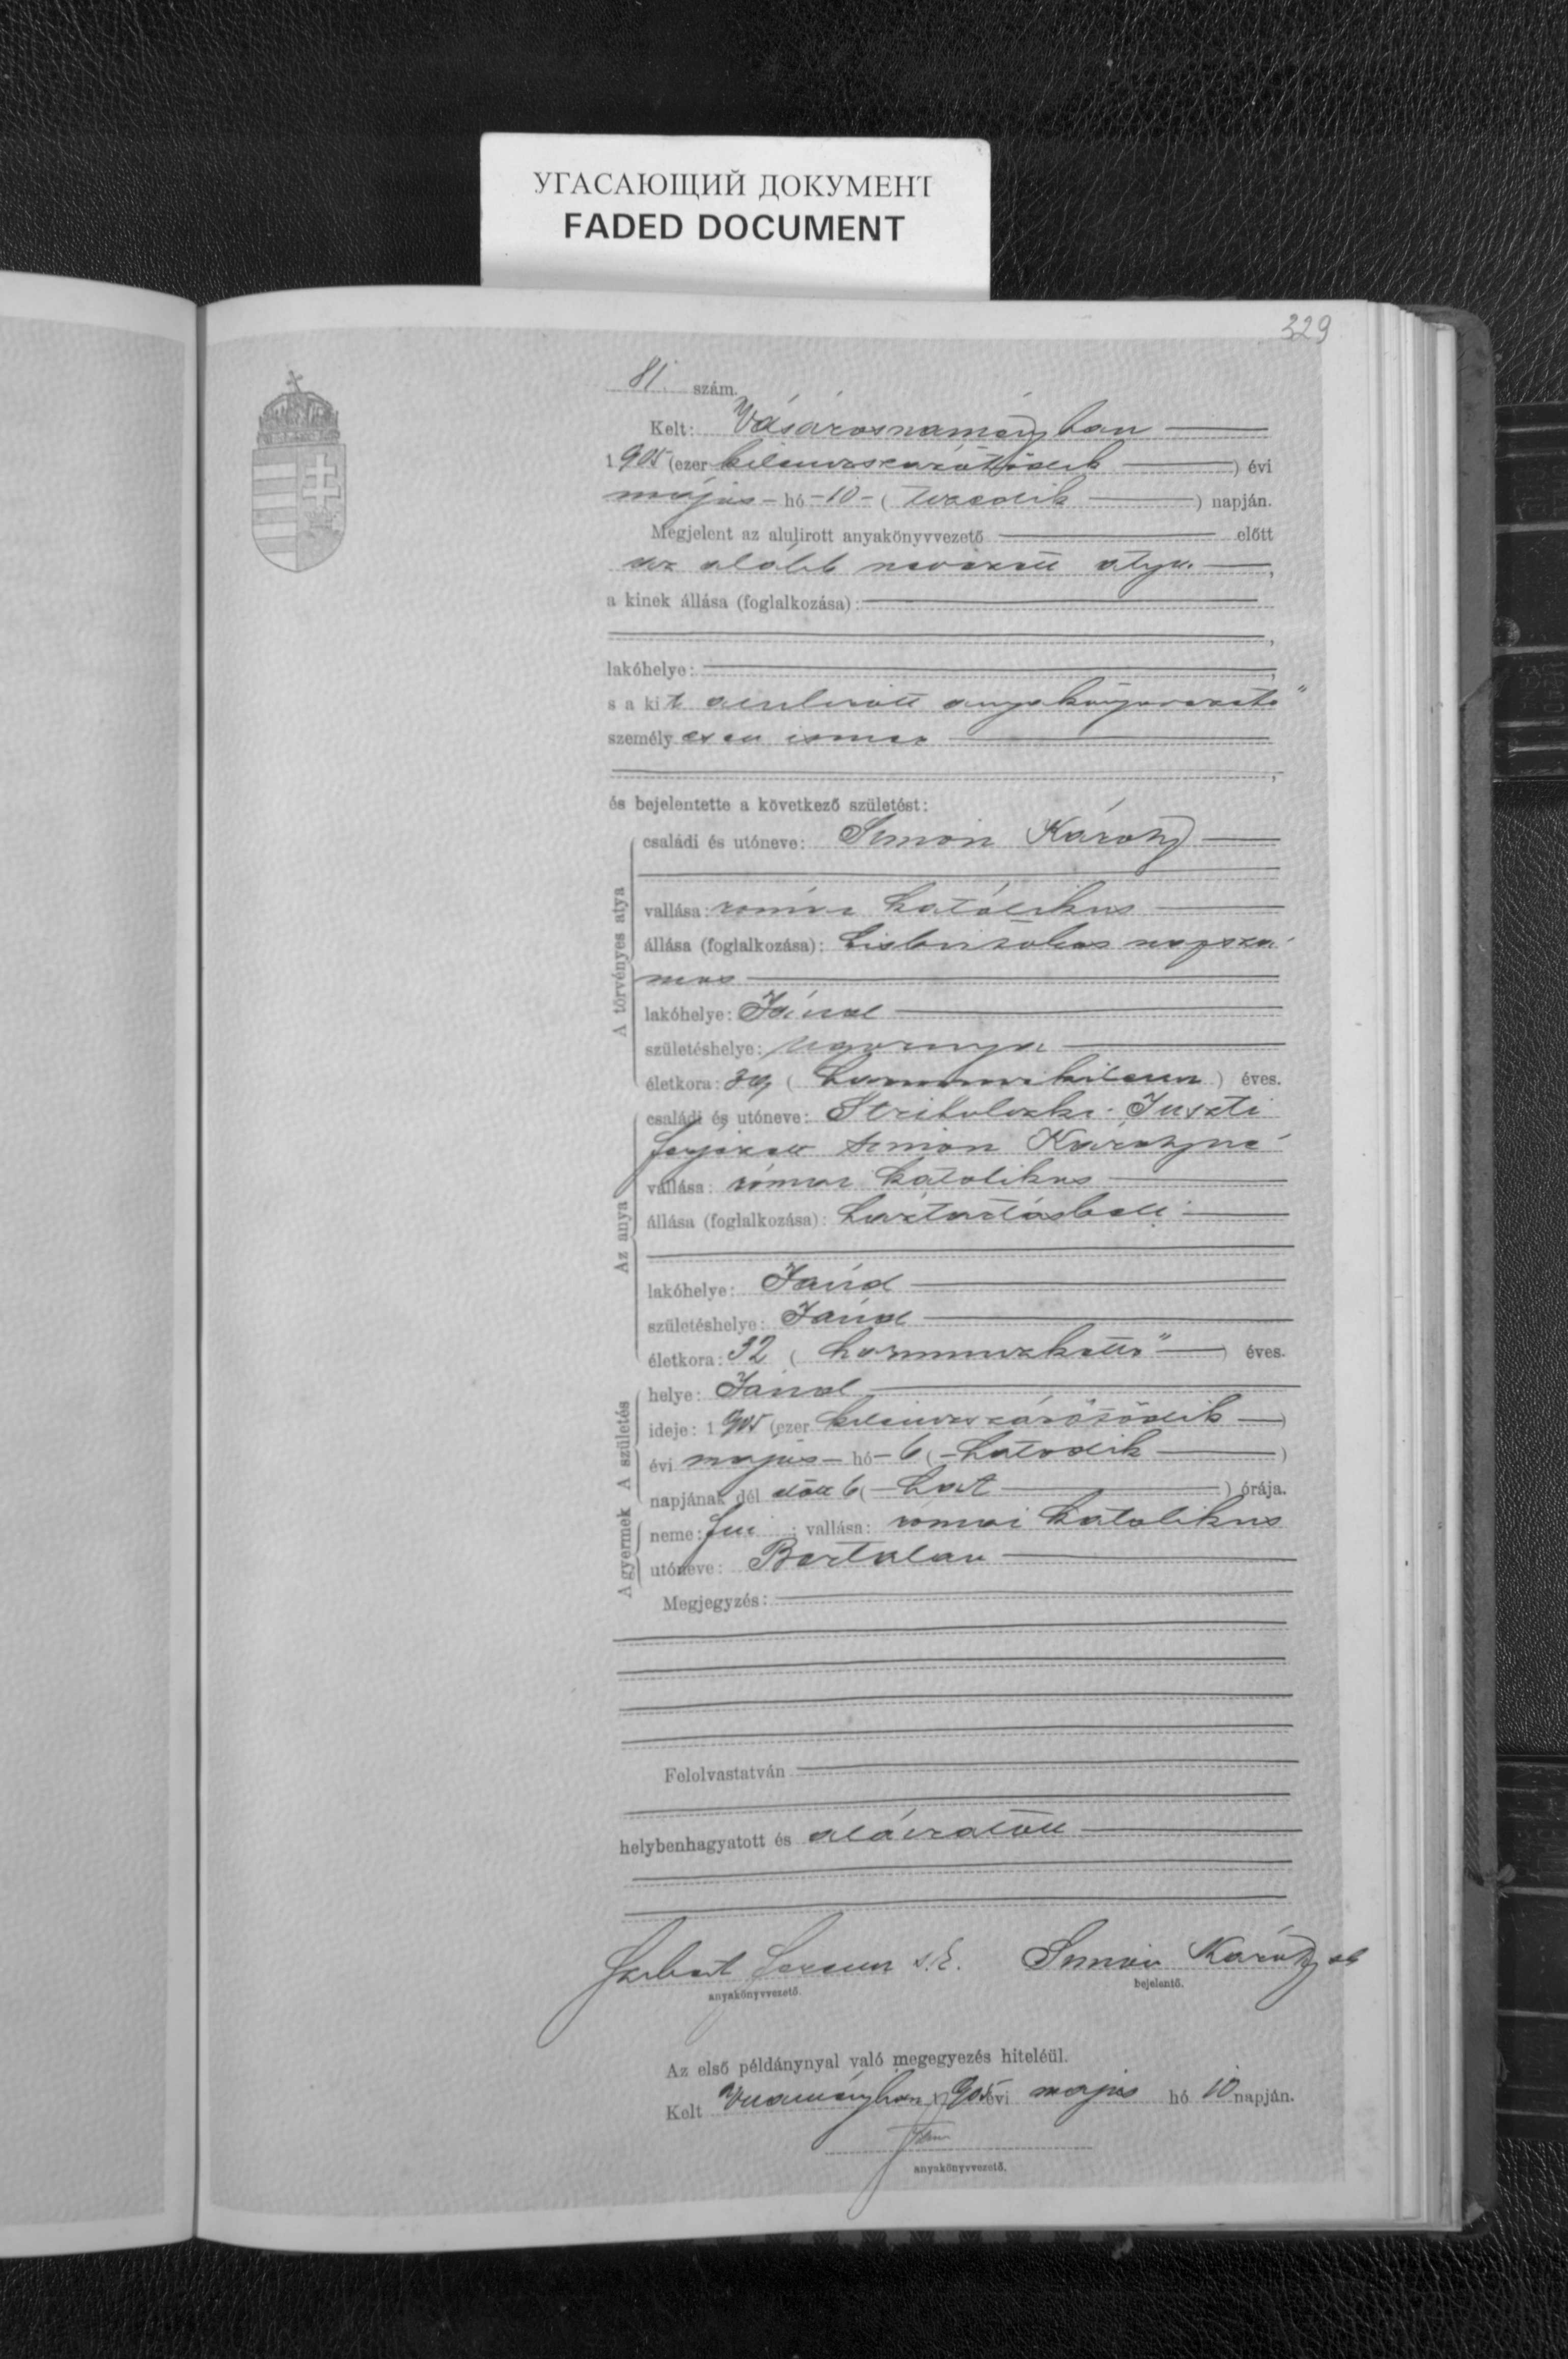 УГАСАЮЩИЙ ДОКУМЕНТ
FADED DOCUMENT
329
81. szám.
Kelt: Vásárosnaményban
1905 (ezer kilenczszázötödik) évi
május hó -10- (tizedik) napján.
Megjelent az alulirott anyakönyvvezető előtt
az alább nevezett atya,
a kinek állása (foglalkozása):
lakóhelye:
s a kit alulirott anyakönyvvezető
személyesen ismer
és bejelentette a következő születést:
A törvényes atya
családi és utóneve: Simon Károly
vallása: római katólikus
állása (foglalkozása): kisbirtokos napszá-
mos
lakóhelye: Jánd
születéshelye: Ugornya
életkora: 39 (harminczkilencz) éves.
Az anya
családi és utóneve: Juszti
férjezett Simon Károlyné
vallása: római katolikus
állása (foglalkozása): háztartásbeli
lakóhelye: Jánd
születéshelye: Jánd
életkora: 32 (harminczkettő) éves.
A születés
helye: Jánd
ideje: 1905 (ezer kilenczszázötödik)
évi május hó -6 (-hatodik)
napjának dél előtt 6 (-hat) órája.
A gyermek
neme: fiú; vallása: római katolikus
utóneve: Bertalan
Megjegyzés:
Felolvastatván
helybenhagyatott és aláiratott
Ferencz s.k. Simon Károly sk
anyakönyvvezető. bejelentő.
Az első példánynyal való megegyezés hiteléül.
Kelt Vnaményban 1905 évi május hó 10 napján.
anyakönyvvezető.